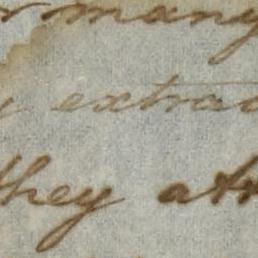 many
extrac
they att